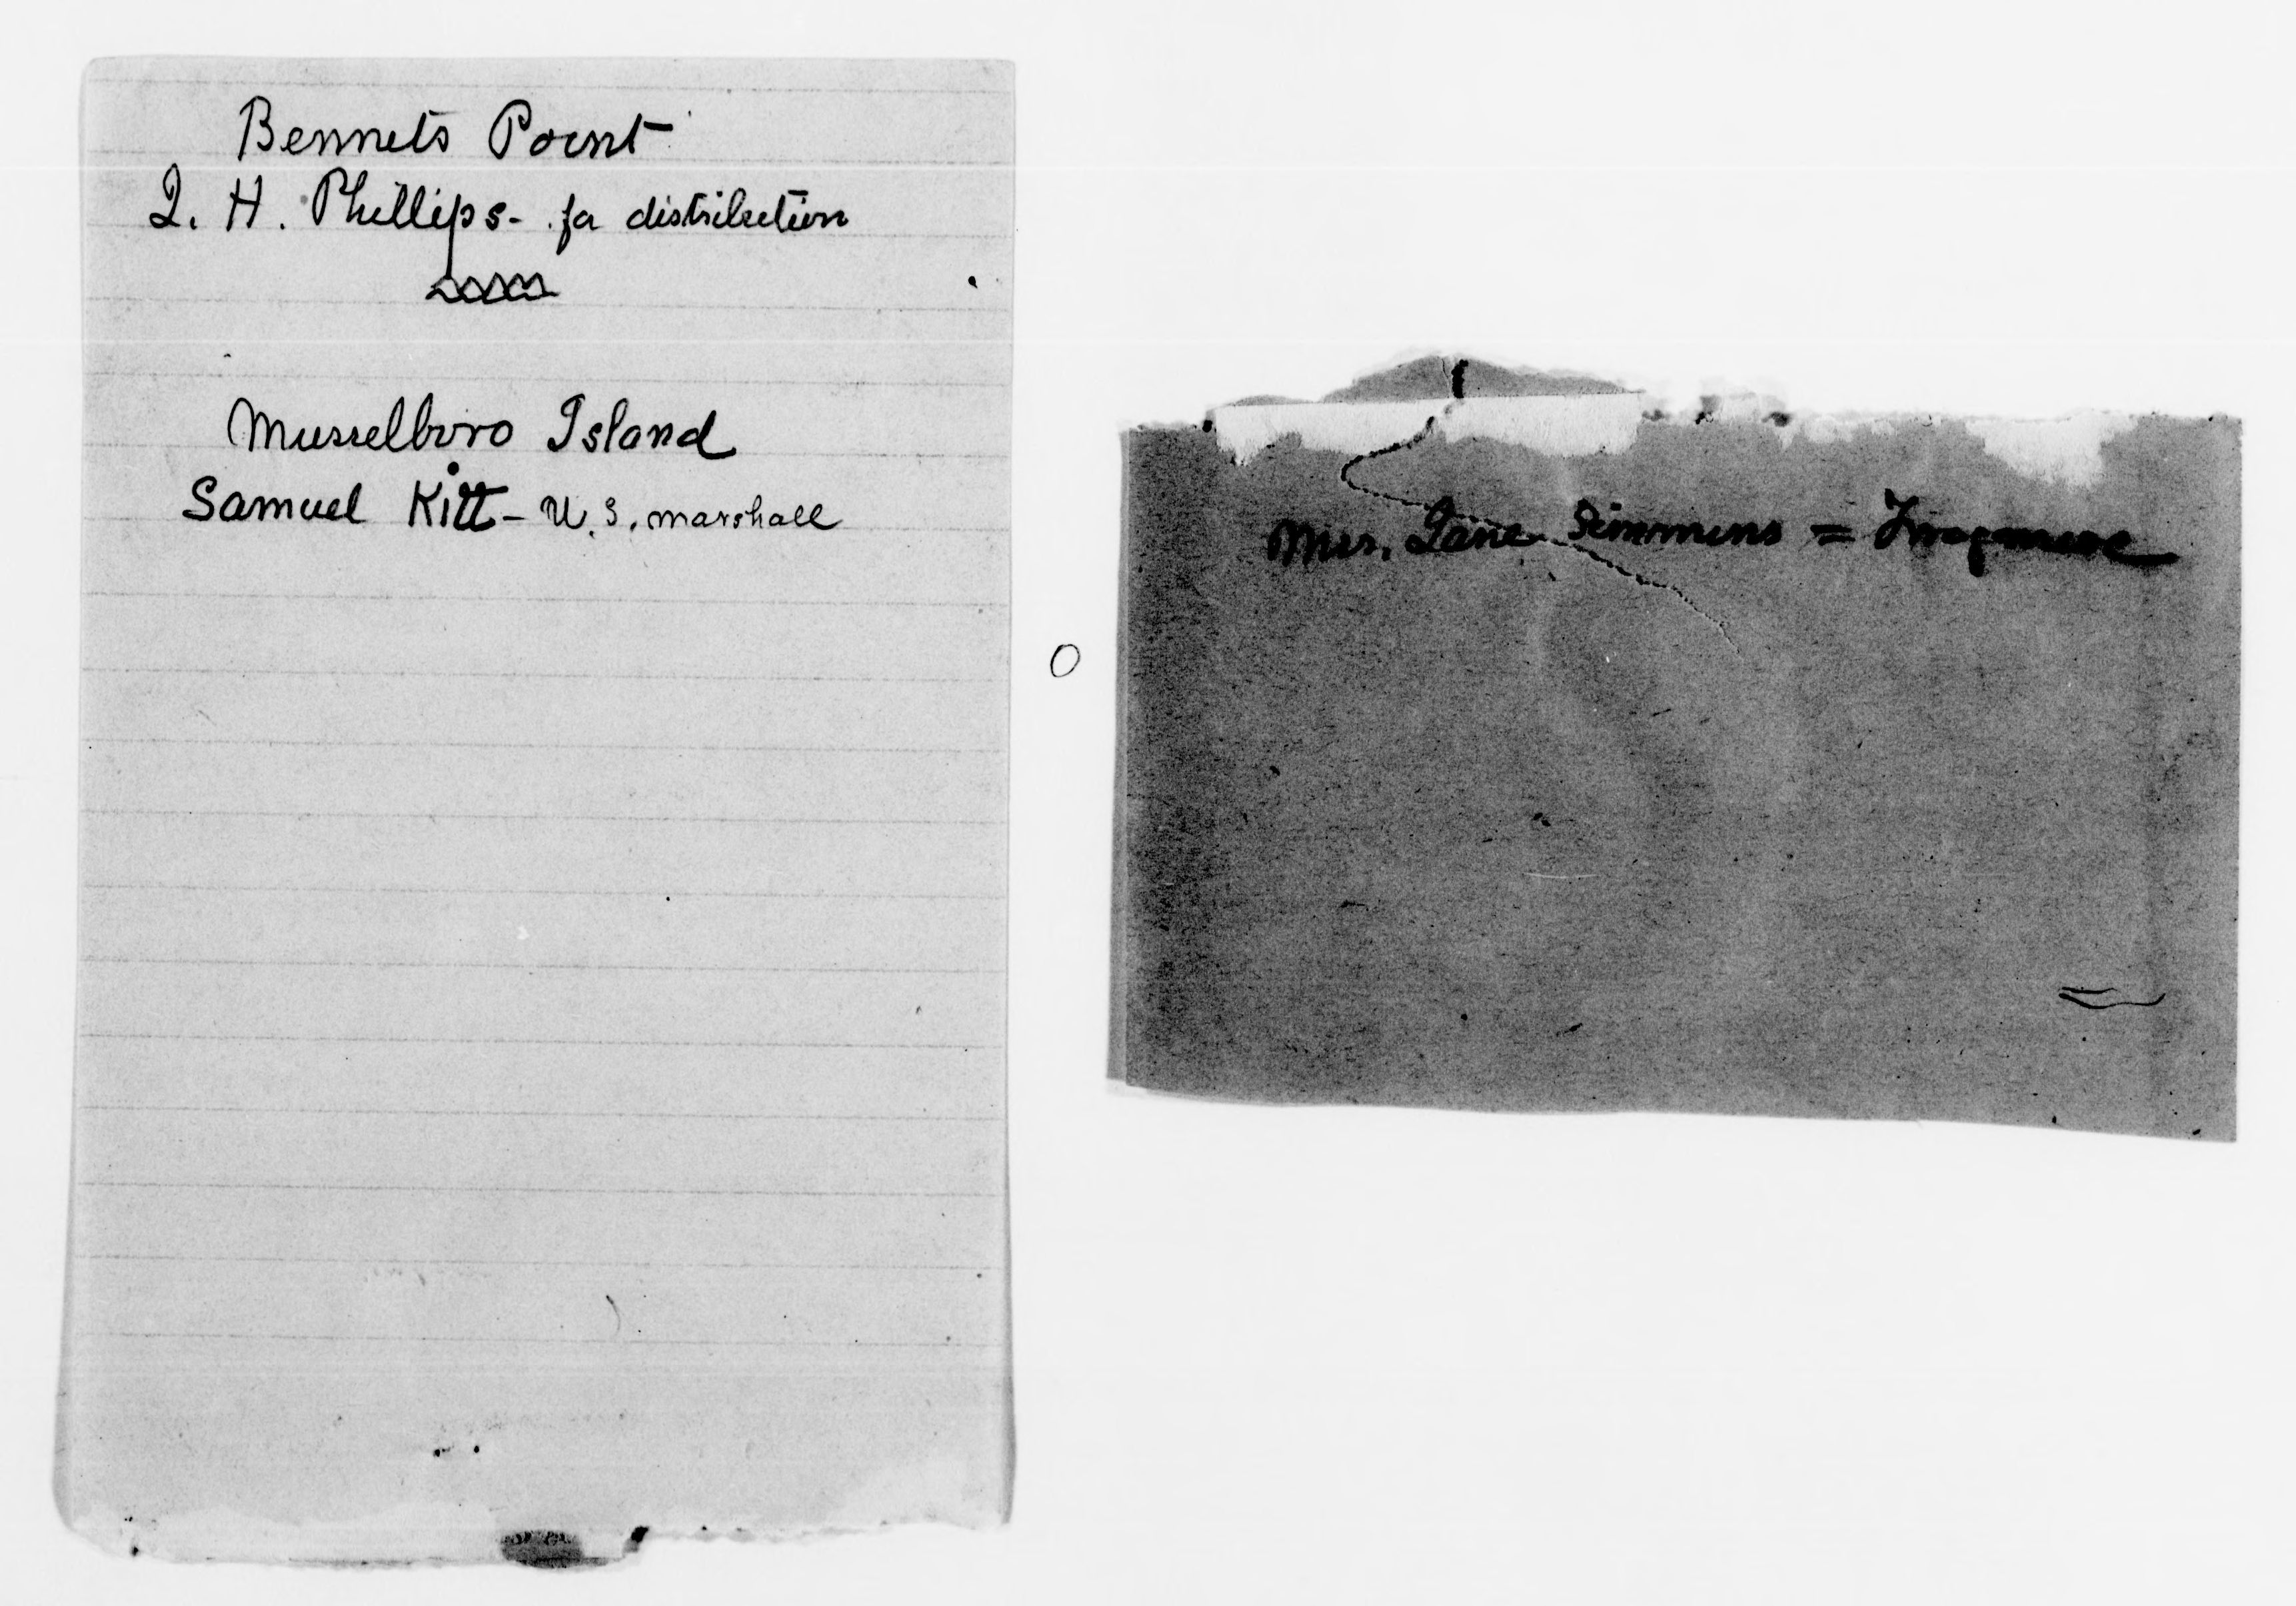 Bennets Point
J. H. Phillips - for distribution
Musselboro Island
Samuel Kitt - U. S. marshall
Mrs. Jane Simmons =